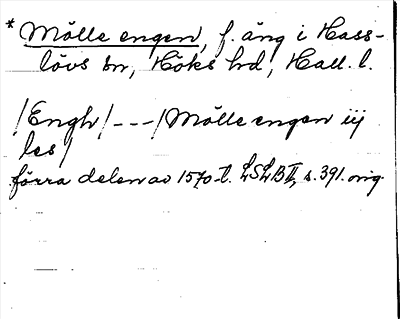 * Mölle engen, f. äng i Hass-
lövs sn, Höks hd, Hall. l.
/Engh/---/Mölle engen iij
les/
förra delen av 1570-t. LSLB II, s. 391. orig.